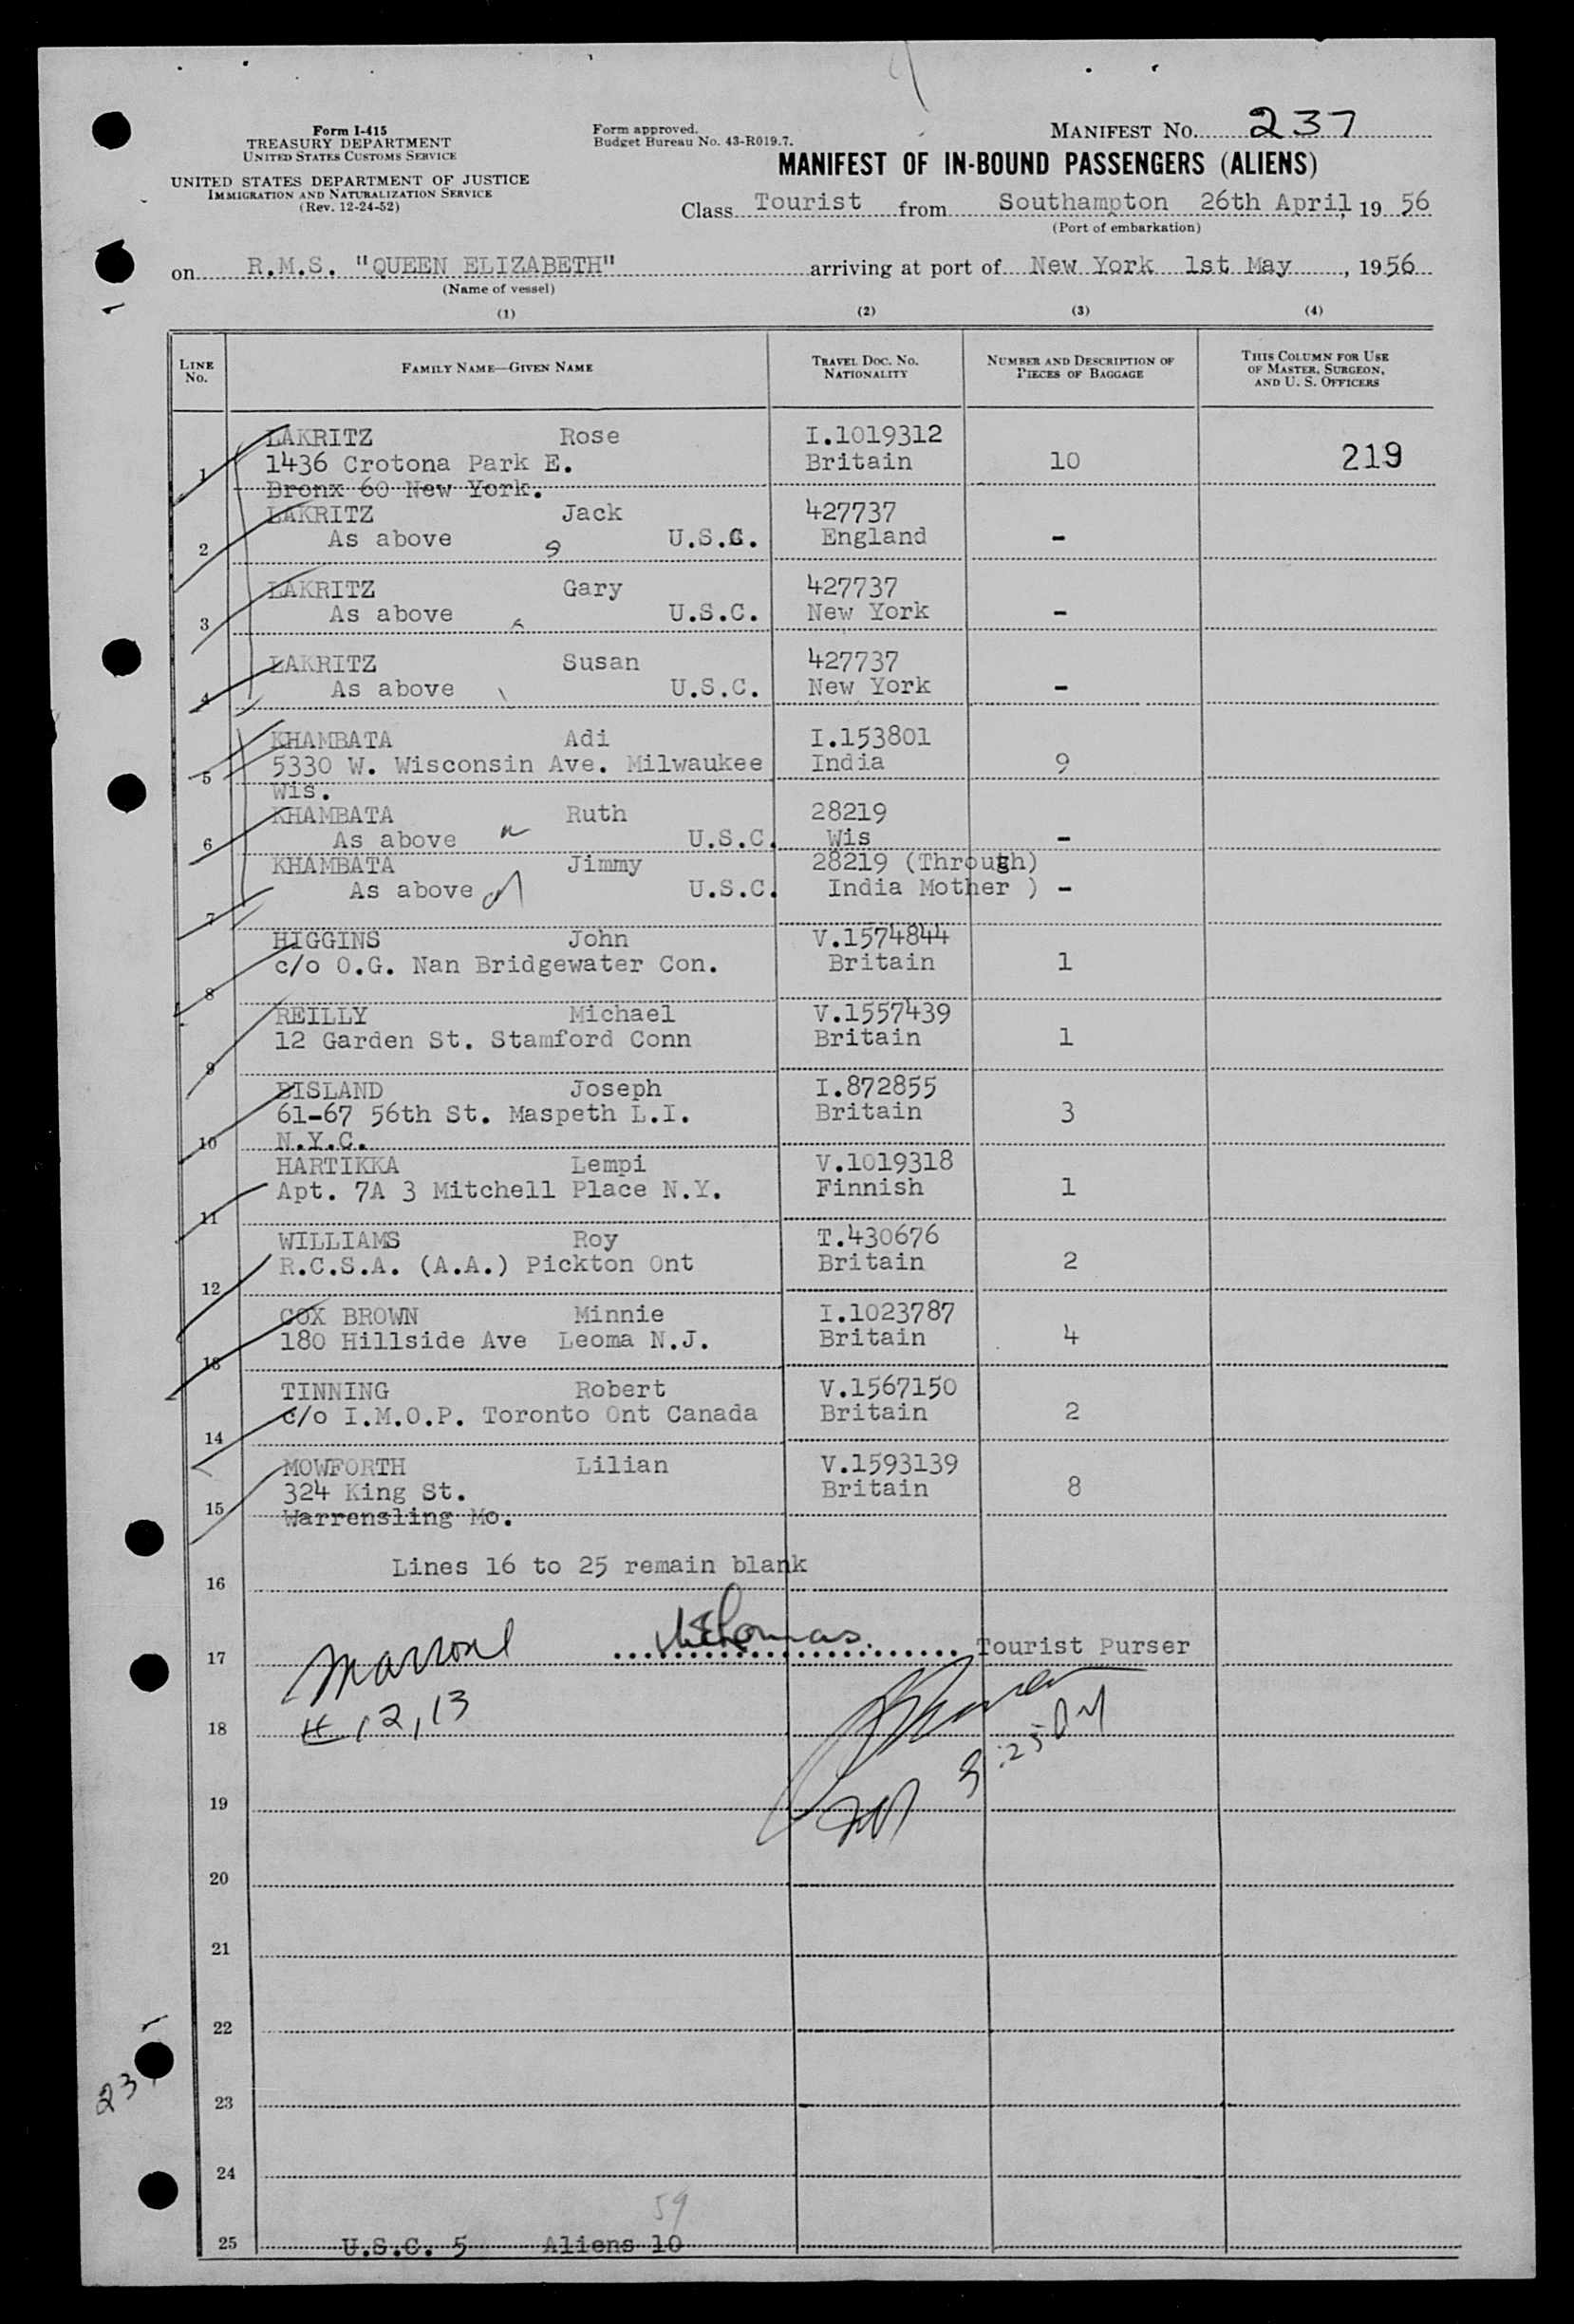 Form I-415
TREASURY DEPARTMENT
UNITED STATES CUSTOMS SERVICE
UNITED STATES DEPARTMENT OF JUSTICE
IMMIGRATION AND NATURALIZATION SERVICE
(Rev. 12-24-52)
Form approved.
Budget Bureau No. 43-R019.7.
MANIFEST NO. 237
MANIFEST OF IN-BOUND PASSENGERS (ALIENS)
Class Tourist from Southampton 26th April, 19 56
(Port of embarkation)
on R.M.S. "QUEEN ELIZABETH" arriving at port of New York 1st May, 1956
(Name of vessel)
(1) (2) (3) (4)
LINE NO. FAMILY NAME—GIVEN NAME TRAVEL DOC. NO. NATIONALITY NUMBER AND DESCRIPTION OF PIECES OF BAGGAGE THIS COLUMN FOR USE OF MASTER, SURGEON, AND U. S. OFFICERS
LAKRITZ Rose I.1019312
1 1436 Crotona Park E. Britain 10 219
Bronx 60 New York.
LAKRITZ Jack 427737
2 As above 9 U.S.C. England -
LAKRITZ Gary 427737
3 As above U.S.C. New York -
LAKRITZ Susan 427737
4 As above U.S.C. New York -
KHAMBATA Adi I.153801
5 5330 W. Wisconsin Ave. Milwaukee India 9
Wis.
KHAMBATA Ruth 28219
6 As above U.S.C. Wis -
KHAMBATA Jimmy 28219 (Through)
7 As above U.S.C. India Mother ) -
HIGGINS John V.1574844
8 c/o O.G. Nan Bridgewater Con. Britain 1
REILLY Michael V.1557439
9 12 Garden St. Stamford Conn Britain 1
BISLAND Joseph I.872855
61-67 56th St. Maspeth L.I. Britain 3
10 N.Y.C.
HARTIKKA Lempi V.1019318
11 Apt. 7A 3 Mitchell Place N.Y. Finnish 1
WILLIAMS Roy T.430676
12 R.C.S.A. (A.A.) Pickton Ont Britain 2
COX BROWN Minnie I.1023787
13 180 Hillside Ave Leoma N.J. Britain 4
TINNING Robert V.1567150
14 c/o I.M.O.P. Toronto Ont Canada Britain 2
MOWFORTH Lilian V.1593139
15 324 King St. Britain 8
Warrensling Mo.
Lines 16 to 25 remain blank
16
17 Tourist Purser
18 12,13
3:25 PM
19
20
21
22
23
24
59
25 U.S.C. 5 Aliens 10